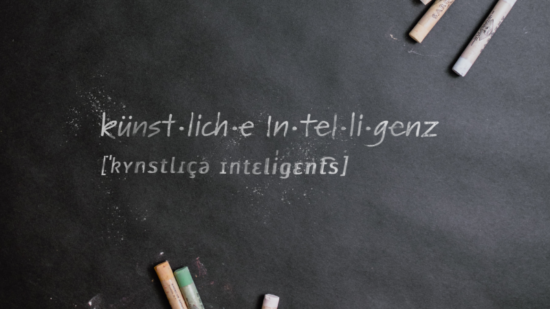 künst·lich·e In·tel·li·genz
[ˈkʏnstlɪçə ɪntɛligɛnt͡s]